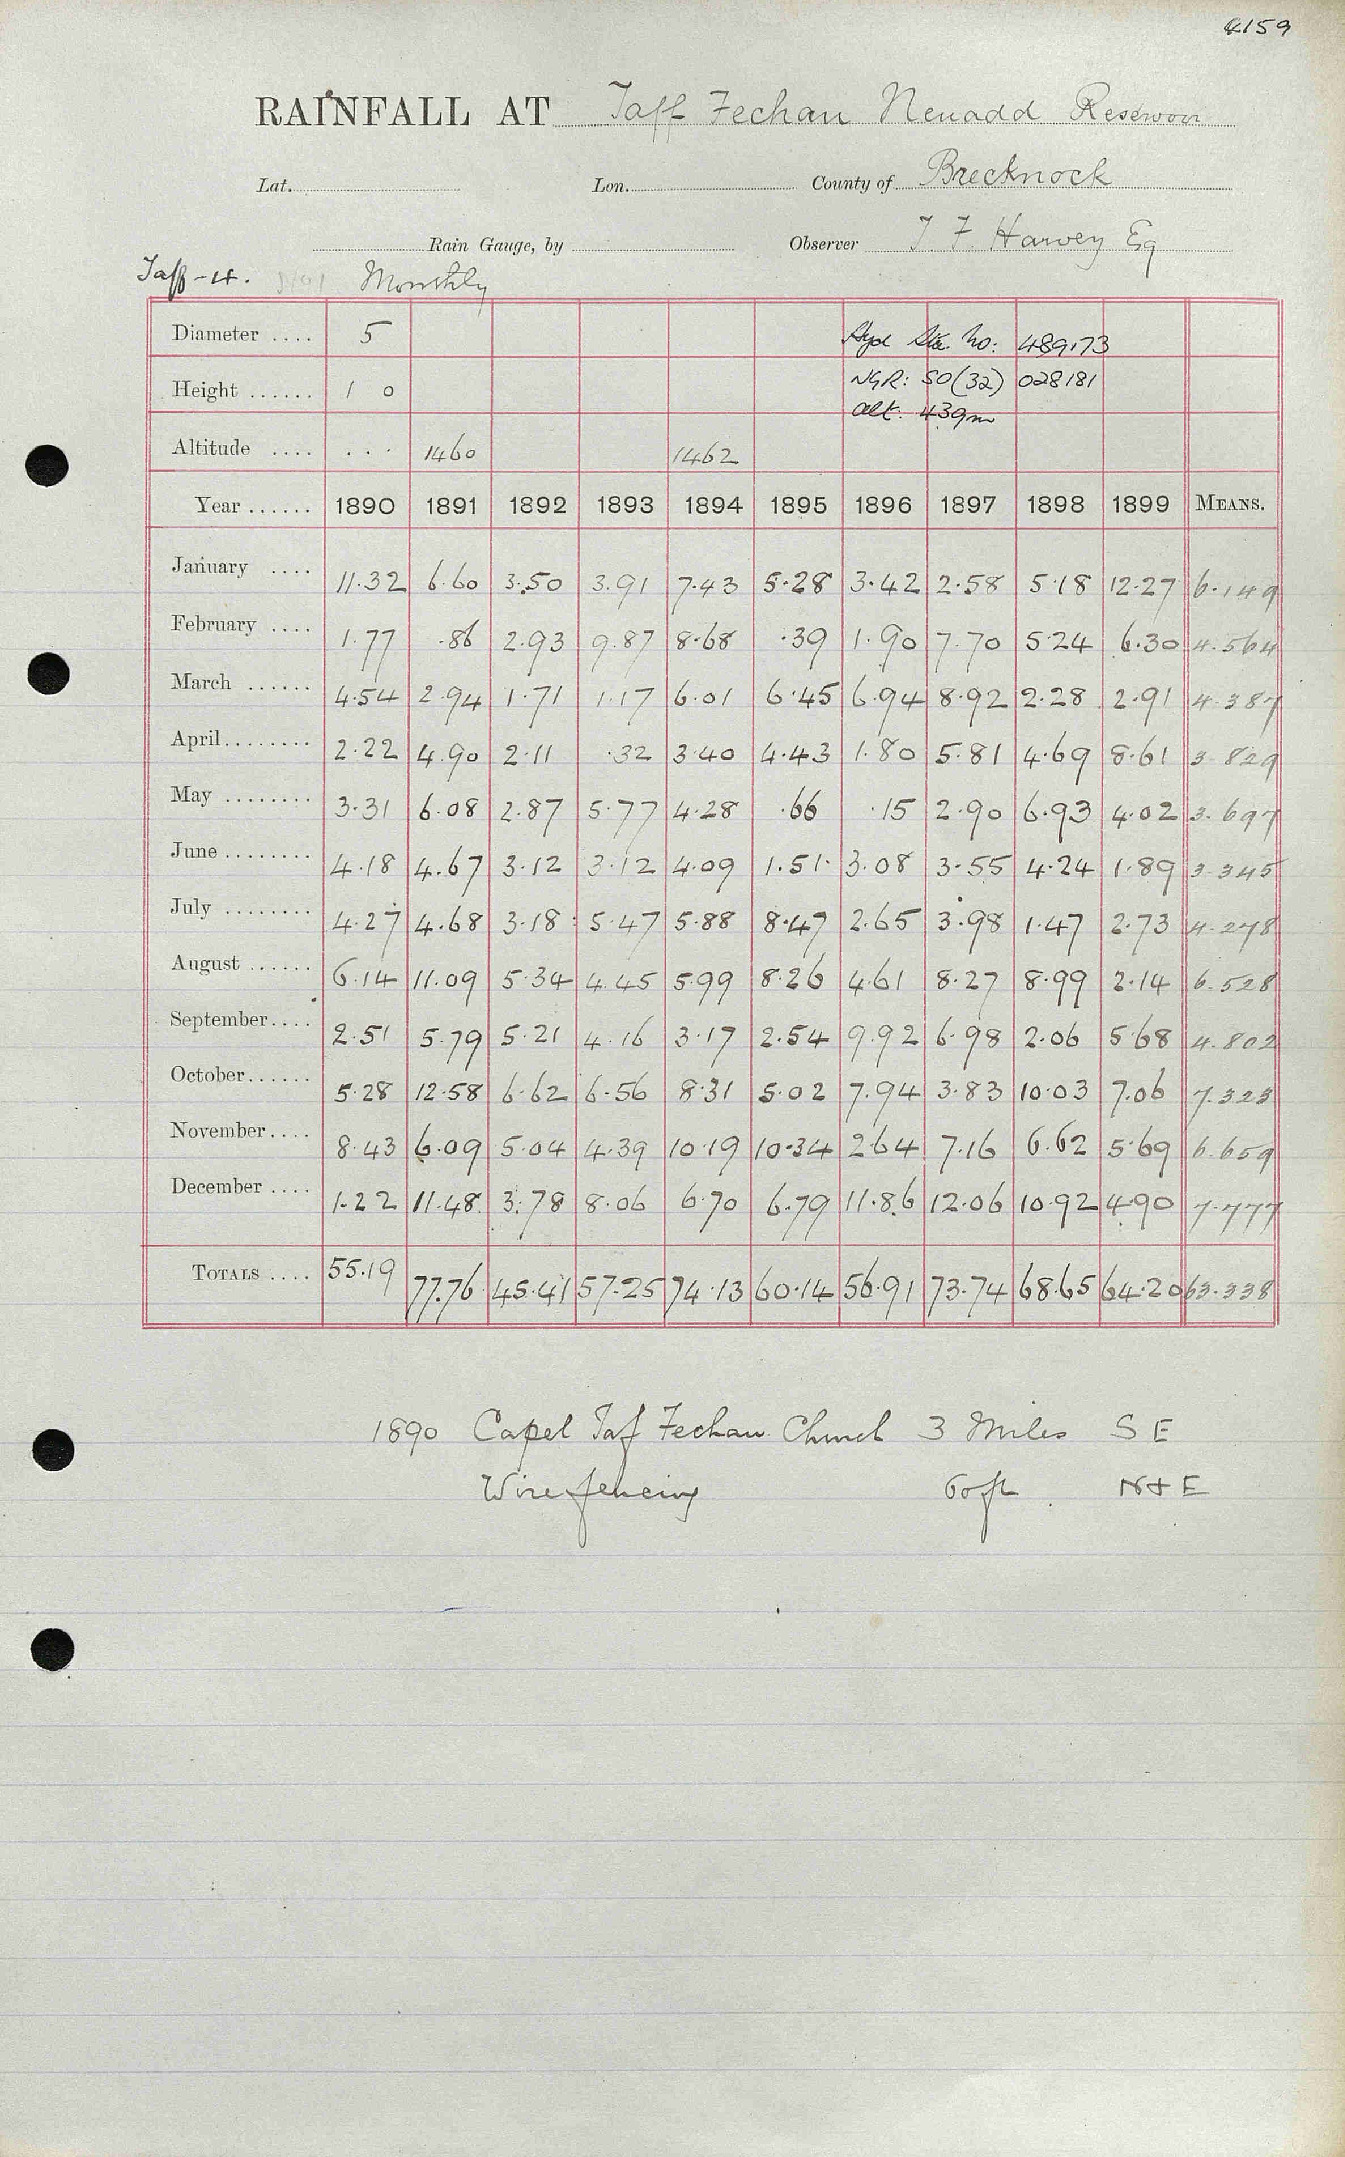 4159
RAINFALL AT Taff Fechan Neuadd Reservoir
Lat. Lon. County of Brecknock
Rain Gauge, by Observer T F Harvey Eq
Taff-4. Monthly
Diameter .... 5 Hyd Sta. No: 489173
Height ...... 1 0 NGR: SO(32) 028181
alt. 439m
Altitude .... ... 1460 1462
Year ...... 1890 1891 1892 1893 1894 1895 1896 1897 1898 1899 MEANS.
January .... 11.32 6.60 3.50 3.91 7.43 5.28 3.42 2.58 5.18 12.27 6.149
February .... 1.77 .86 2.93 9.87 8.68 .39 1.90 7.70 5.24 6.30 4.564
March ...... 4.54 2.94 1.71 1.17 6.01 6.45 6.94 8.92 2.28 2.91 4.387
April........ 2.22 4.90 2.11 .32 3.40 4.43 1.80 5.81 4.69 8.61 3.829
May ........ 3.31 6.08 2.87 5.77 4.28 .66 .15 2.90 6.93 4.02 3.697
June ........ 4.18 4.67 3.12 3.12 4.09 1.51 3.08 3.55 4.24 1.89 3.345
July ........ 4.27 4.68 3.18 5.47 5.88 8.47 2.65 3.98 1.47 2.73 4.278
August ...... 6.14 11.09 5.34 4.45 5.99 8.26 4.61 8.27 8.99 2.14 6.528
September.... 2.51 5.79 5.21 4.16 3.17 2.54 9.92 6.98 2.06 5.68 4.802
October...... 5.28 12.58 6.62 6.56 8.31 5.02 7.94 3.83 10.03 7.06 7.323
November.... 8.43 6.09 5.04 4.39 10.19 10.34 2.64 7.16 6.62 5.69 6.659
December .... 1.22 11.48 3.78 8.06 6.70 6.79 11.86 12.06 10.92 4.90 7.777
TOTALS .... 55.19 77.76 45.41 57.25 74.13 60.14 56.91 73.74 68.65 64.20 63.338
1890 Capel Taf Fechan Church 3 Miles S E
Wire fencing 60 ft N & E